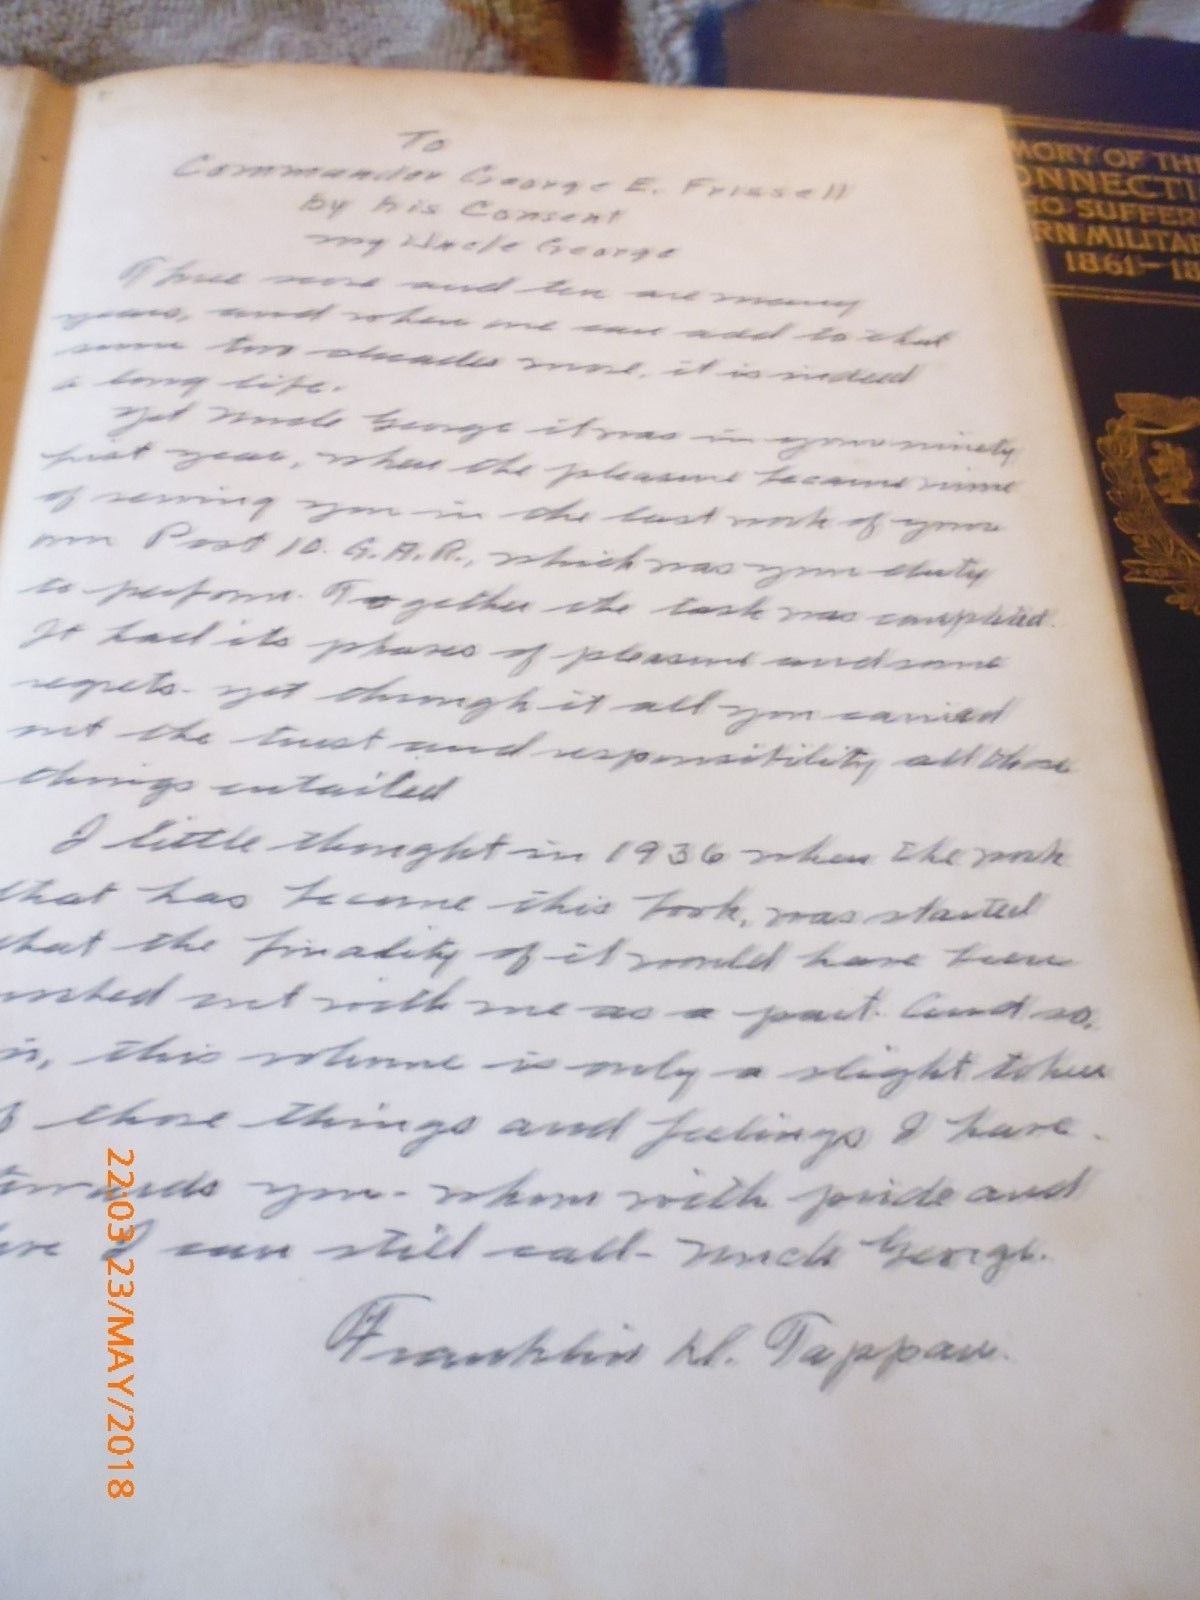 To
Commander George E. Frissell
By his Consent
my Uncle George
Three score and ten are many
years, and when one can add to that
some two decades more, it is indeed
a long life.
Yet Uncle George it was in your ninety
first year, when the pleasure became mine
of serving you in the last work of your
own Post 10. G.A.R., which was your duty
to perform. Together the task was completed.
It had its phases of pleasure and some
regrets - yet through it all you carried
out the trust and responsibility all those
things entailed
I little thought in 1936 when the work
that has become this book, was started
that the finality of it would have been
worked out with me as a part. And so,
this volume is only a slight token
of those things and feelings I have
towards you - whom with pride and
I can still call - Uncle George.
Franklin D. Tappan.
MORY OF THE
ONNECTI
HO SUFFER
RN MILITA
1861-18
22:03 23/MAY/2018